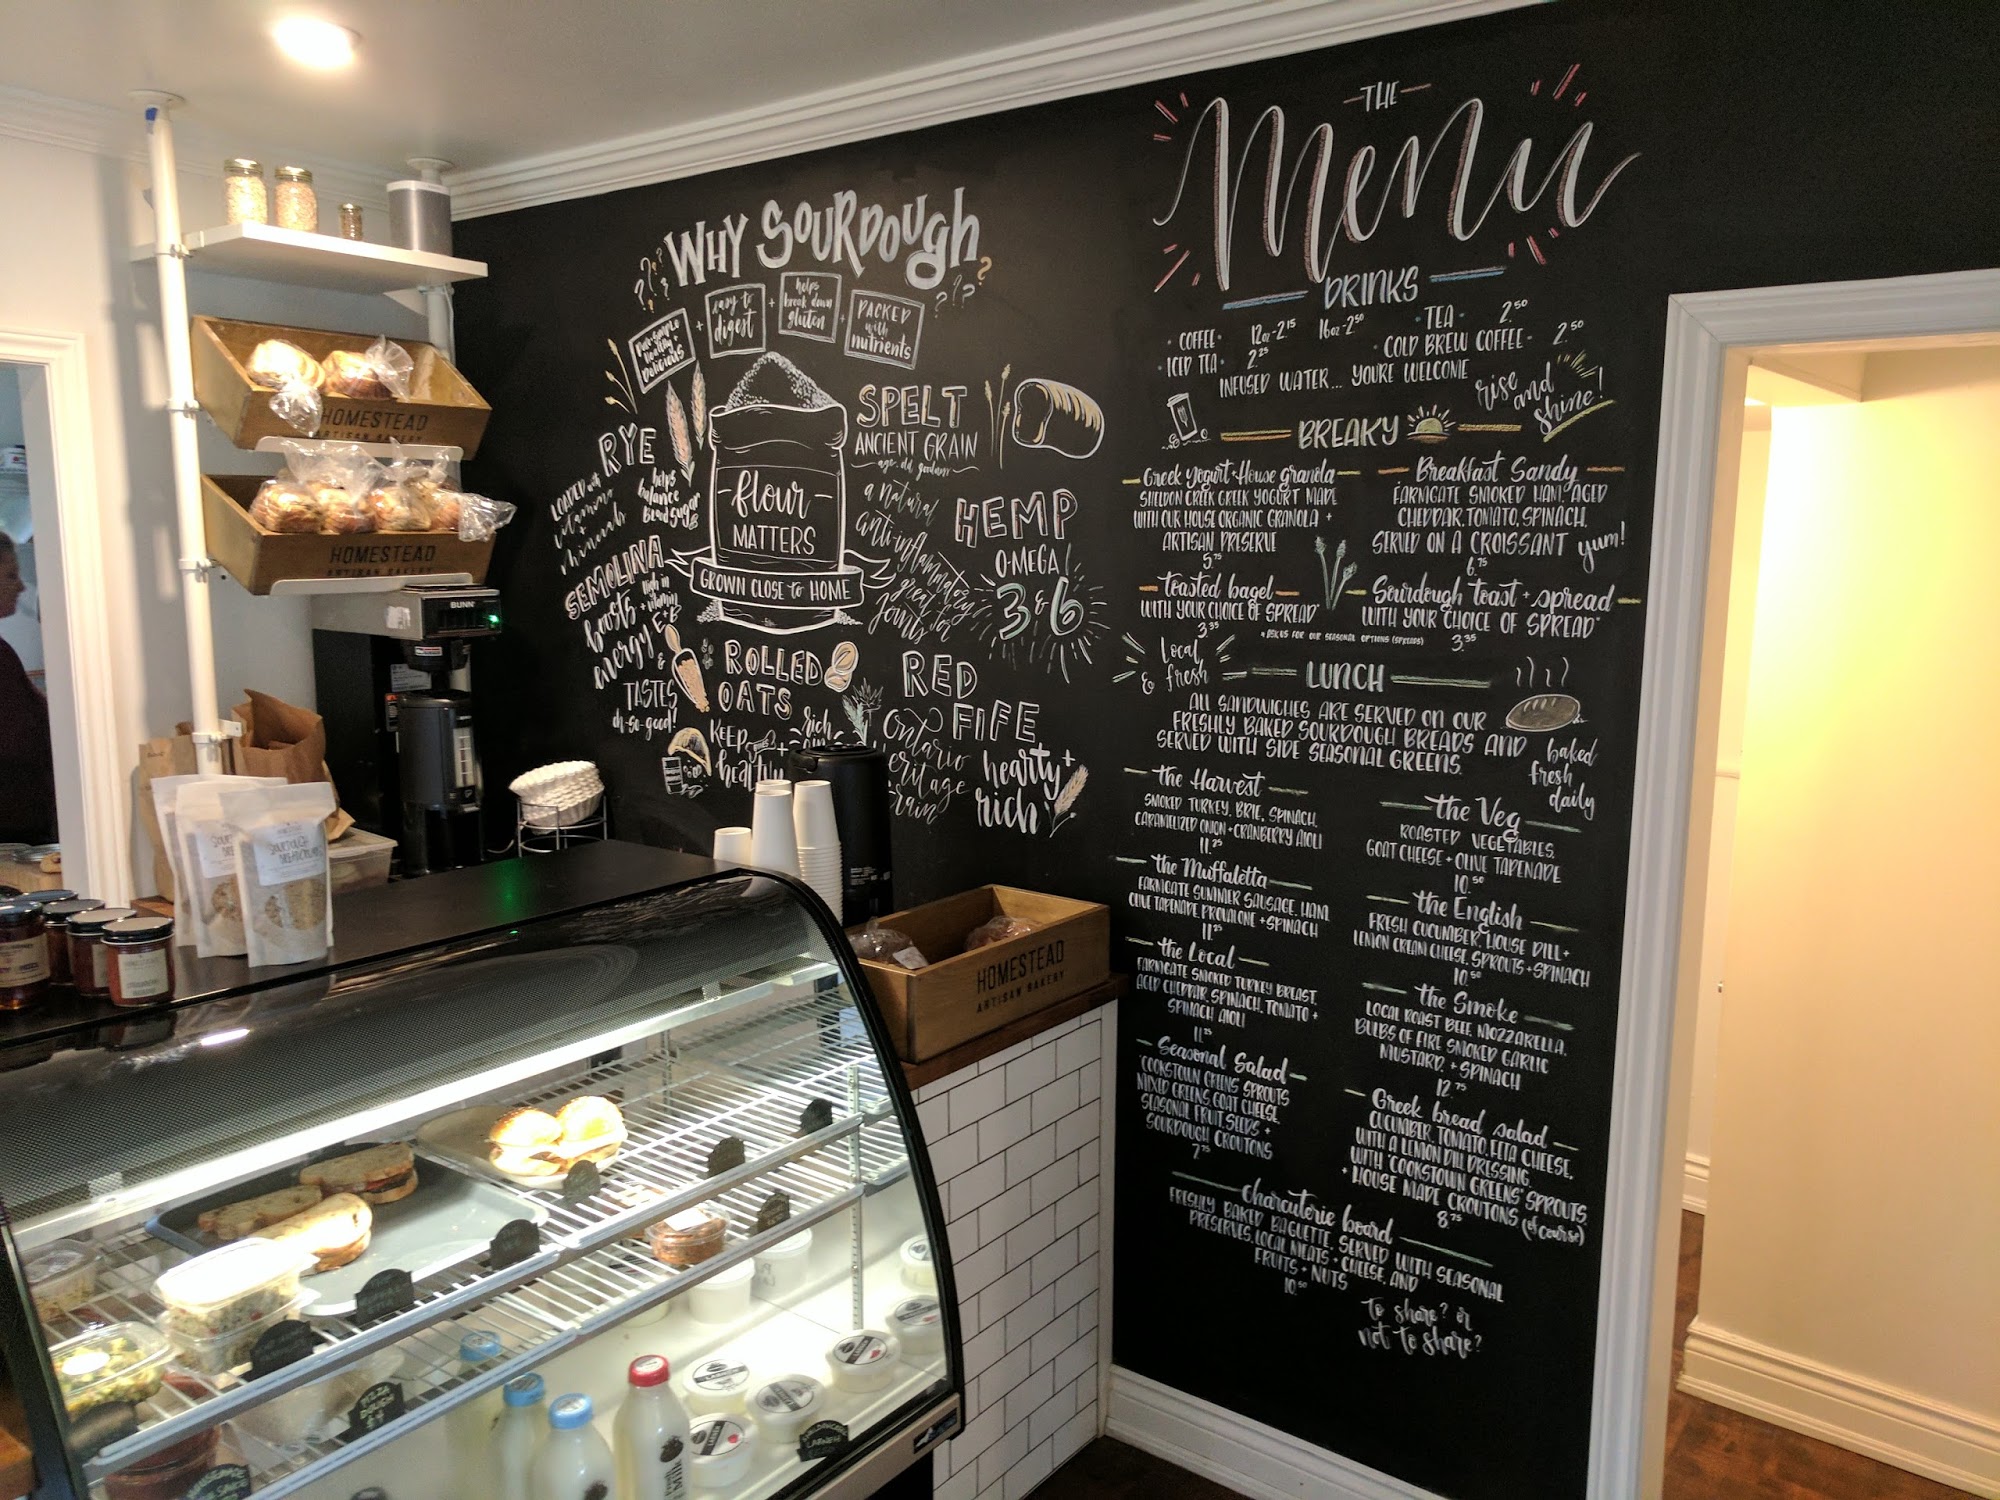 WHY SOURDOUGh
easy to
digest
+
helps
break down
gluten
+
PACKED
with
nutrients
RYE
LOADED with
vitamins
minerals
helps
balance
Blood sugar
flour
MATTERS
GROWN CLOSE to HOME
SPELT
ANCIENT GRAIN
age-old goodness
a natural
anti-inflammatory
great for
joints
HEMP
OMEGA!
3 & 6
SEMOLINA
boosts
energy
rich in
vitamin
E+B
&
TASTES
oh-so-good!
ROLLED
OATS
KEEP
healthy
rich
RED
FIFE
Ontario
hearty+
rich
THE
Menu
DRINKS
COFFEE 12oz-2.15 16oz-2.50
TEA 2.50
ICED TEA 2.25
COLD BREW COFFEE- 2.50
INFUSED WATER... YOU'RE WELCOME
rise and
shine!
BREAKY
Greek Yogurt+House granola
SHELDON CREEK GREEK YOGURT MADE
WITH OUR HOUSE ORGANIC GRANOLA +
ARTISAN PRESERVE
5.75
Breakfast Sandy
FARMGATE SMOKED HAM, AGED
CHEDDAR, TOMATO, SPINACH,
SERVED ON A CROISSANT yum!
6.75
toasted bagel
WITH YOUR CHOICE OF SPREAD*
3.35
Sourdough toast + spread
WITH YOUR CHOICE OF SPREAD*
3.35
* ASK US FOR OUR SEASONAL OPTIONS (SPREADS)
Local
& fresh
LUNCH
ALL SANDWICHES ARE SERVED ON OUR
FRESHLY BAKED SOURDOUGH BREADS AND
SERVED WITH SIDE SEASONAL GREENS.
baked
fresh
daily
the Harvest
SMOKED TURKEY, BRIE, SPINACH,
CARAMELIZED ONION + CRANBERRY AIOLI
11.25
the Muffaletta
FARMGATE SUMMER SAUSAGE, HAM,
OLIVE TAPENADE, PROVALONE + SPINACH
11.25
the Local
FARMGATE SMOKED TURKEY BREAST,
AGED CHEDDAR, SPINACH, TOMATO +
SPINACH AIOLI
11.25
Seasonal Salad
'COOKSTOWN GREENS' SPROUTS
MIXED GREENS, GOAT CHEESE,
SEASONAL FRUIT, SEEDS +
SOURDOUGH CROUTONS
7.75
the Veg
ROASTED VEGETABLES,
GOAT CHEESE + OLIVE TAPENADE
10.50
the English
FRESH CUCUMBER, HOUSE DILL +
LEMON CREAM CHEESE, SPROUTS + SPINACH
10.50
the Smoke
LOCAL ROAST BEEF, MOZZARELLA,
BULBS OF FIRE SMOKED GARLIC
MUSTARD, + SPINACH
12.75
Greek bread salad
CUCUMBER, TOMATO, FETA CHEESE,
WITH A LEMON DILL DRESSING,
WITH 'COOKSTOWN GREENS' SPROUTS,
+ HOUSE MADE CROUTONS (of course)
8.75
charcuterie board
FRESHLY BAKED BAGUETTE, SERVED WITH SEASONAL
PRESERVES, LOCAL MEATS + CHEESE, AND
FRUITS + NUTS
10.50
to share? or
not to share?
HOMESTEAD
ARTISAN BAKERY
HOMESTEAD
ARTISAN BAKERY
HOMESTEAD
ARTISAN BAKERY
BUNN
PIZZA
DOUGH
$4